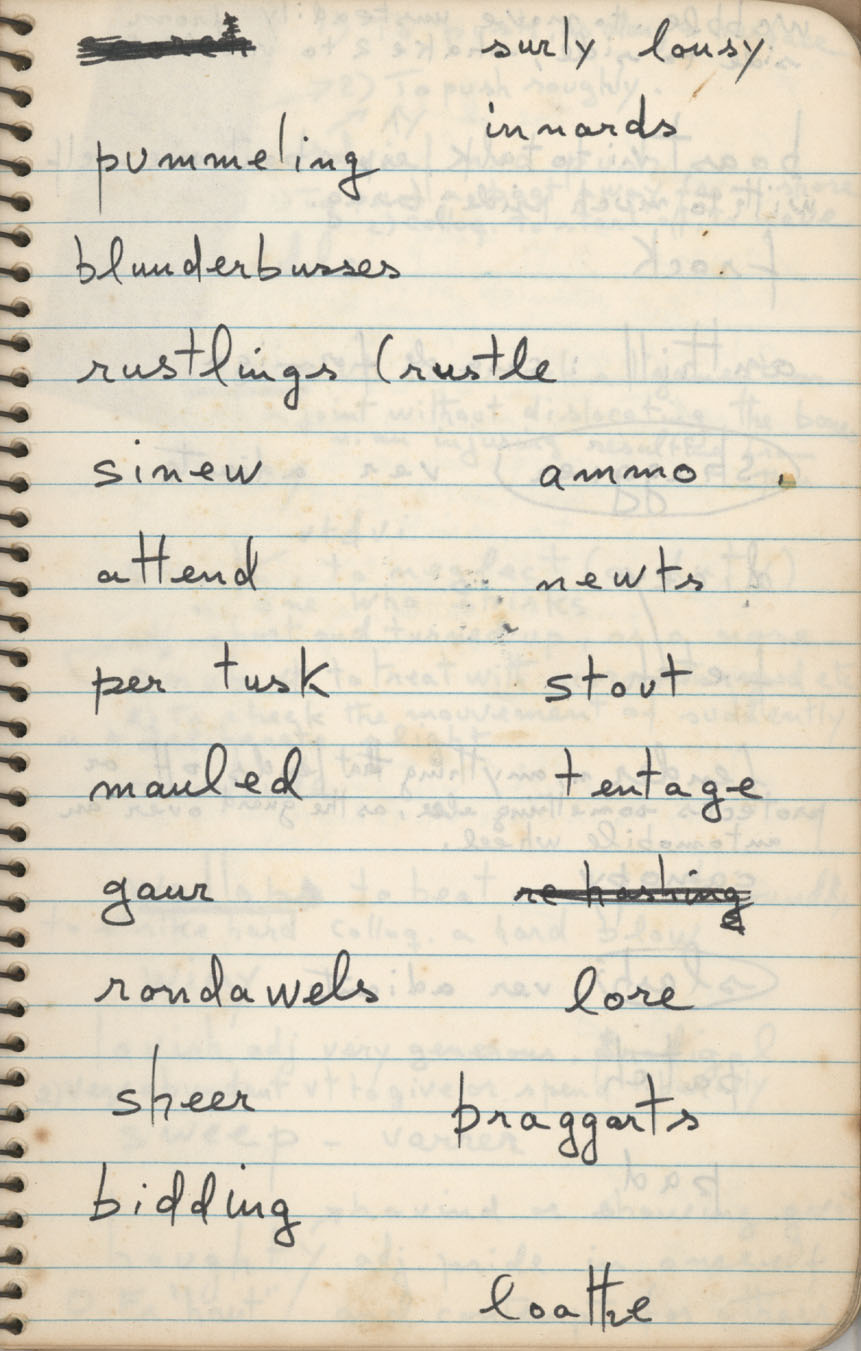 surly lousy
innards
pummeling
blunderbusses
rustlings (rustle
sinew ammo
attend newts
per tusk stout
mauled tentage
gaur rehashing
rondawels lore
sheer braggarts
bidding
loathe